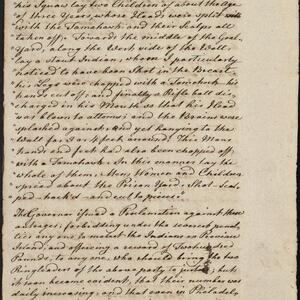 his Squaw lay two Children of about the age
of three Years, whose Heads were split open
with the Tomahawk, and their Scalps all
taken off. Towards the middle of the Goal
Yard, along the West side of the Wall,
lay a Stout Indian, whom I particularly
noticed to have been Shot in the Breast,
his Legs were chopped with a Tomahawk, his
hands cut off, and finally a Rifle ball dis-
charged in his Mouth so that his Head
was blown to attoms and the Brains were
splashed against and yet hanging to the
Wall for 3 or 4 feet around. This Mans
hands and feet had also been chopped off
with a Tomahawk. In this manner lay the
whole of them, Men, Women and Children
spread about the Prison Yard, Shot scal-
ped – hack'd – and cut to pieces.
The Governor issued a Proclamation against these
outrages, forbidding under the severest penal-
ties any one to molest the Indians on Province
Island, and offering a reward of Two hundred
Pounds to any one, who should bring the two
Ringleaders of the above party to justice; but
it soon became evident, that their number was
daily increasing, and that even in Philadelp